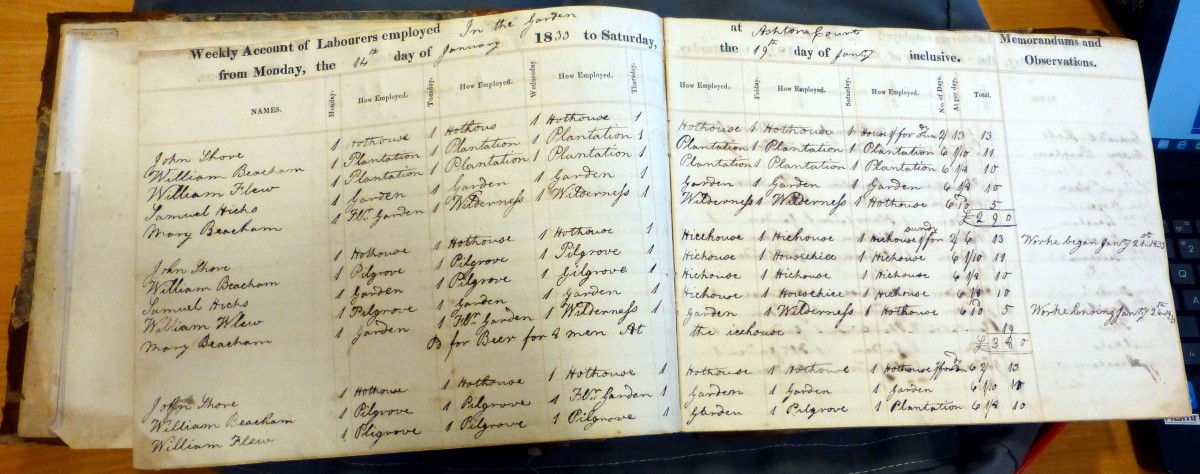 Weekly Account of Labourers employed In the Garden at Ashton Court Memorandums and
from Monday, the 14th day of January 1833 to Saturday, the 19th day of Jany inclusive. Observations.
NAMES. Monday. How Employed. Tuesday. How Employed. Wednesday How Employed. Thursday. How Employed. Friday. How Employed. Saturday. How Employed. No. of Days. At per day. Total.
John Shore 1 Hothouse 1 Hothous 1 Hothouse 1 Hothouse 1 Hothouse 1 House 1 for 13
William Beacham 1 Plantation 1 Plantation 1 Plantation 1 Plantation 1 Plantation 1 Plantation 6 1/10 11
William Flew 1 Plantation 1 Plantation 1 Plantation 1 Plantation 1 Plantation 1 Plantation 6 1/8 10
Samuel Hichs 1 Garden 1 Garden 1 Garden 1 Garden 1 Garden 1 Garden 6 1/8 10
Mary Beacham 1 Flr Garden 1 Wilderness 1 Wilderness 1 Wilderness 1 Wilderness 1 Hothouse 6 10 5
£2 9 0
John Shore 1 Hothouse 1 Hothouse 1 Hothouse 1 Hicehouse 1 Hichouse 1 Hichouse 1 for sunday 2/ 6 13 Worke began Jany 21st 1833
William Beacham 1 Pilgrove 1 Pilgrove 1 Pilgrove 1 Hichouse 1 Househice 1 Hichouse 6 1/10 11
Samuel Hichs 1 Garden 1 Pilgrove 1 Gilgrove 1 Hichouse 1 Hichouse 1 Hichouse 6 1/8 10
William Wlew 1 Pilgrove 1 Garden 1 Garden 1 Hichouse 1 Househice 1 Hichouse 6 1/8 10
Mary Beacham 1 Garden 1 Flr Garden 1 Wilderness 1 Garden 1 Wilderness 1 Hothouse 6 10 5 Worke honding Jany 26th
for Beer for 8 men At the icehouse
£3 8 0
John Shore 1 Hothouse 1 Hothouse 1 Hothouse 1 Hothouse 1 Hothouse 1 Hothouse 6 2/ 13
William Beacham 1 Pilgrove 1 Pilgrove 1 Flr Garden 1 Garden 1 Garden 1 Garden 6 1/10
William Flew 1 Pligrove 1 Pilgrove 1 Pilgrove 1 Garden 1 Pilgrove 1 Plantation 6 1/8 10